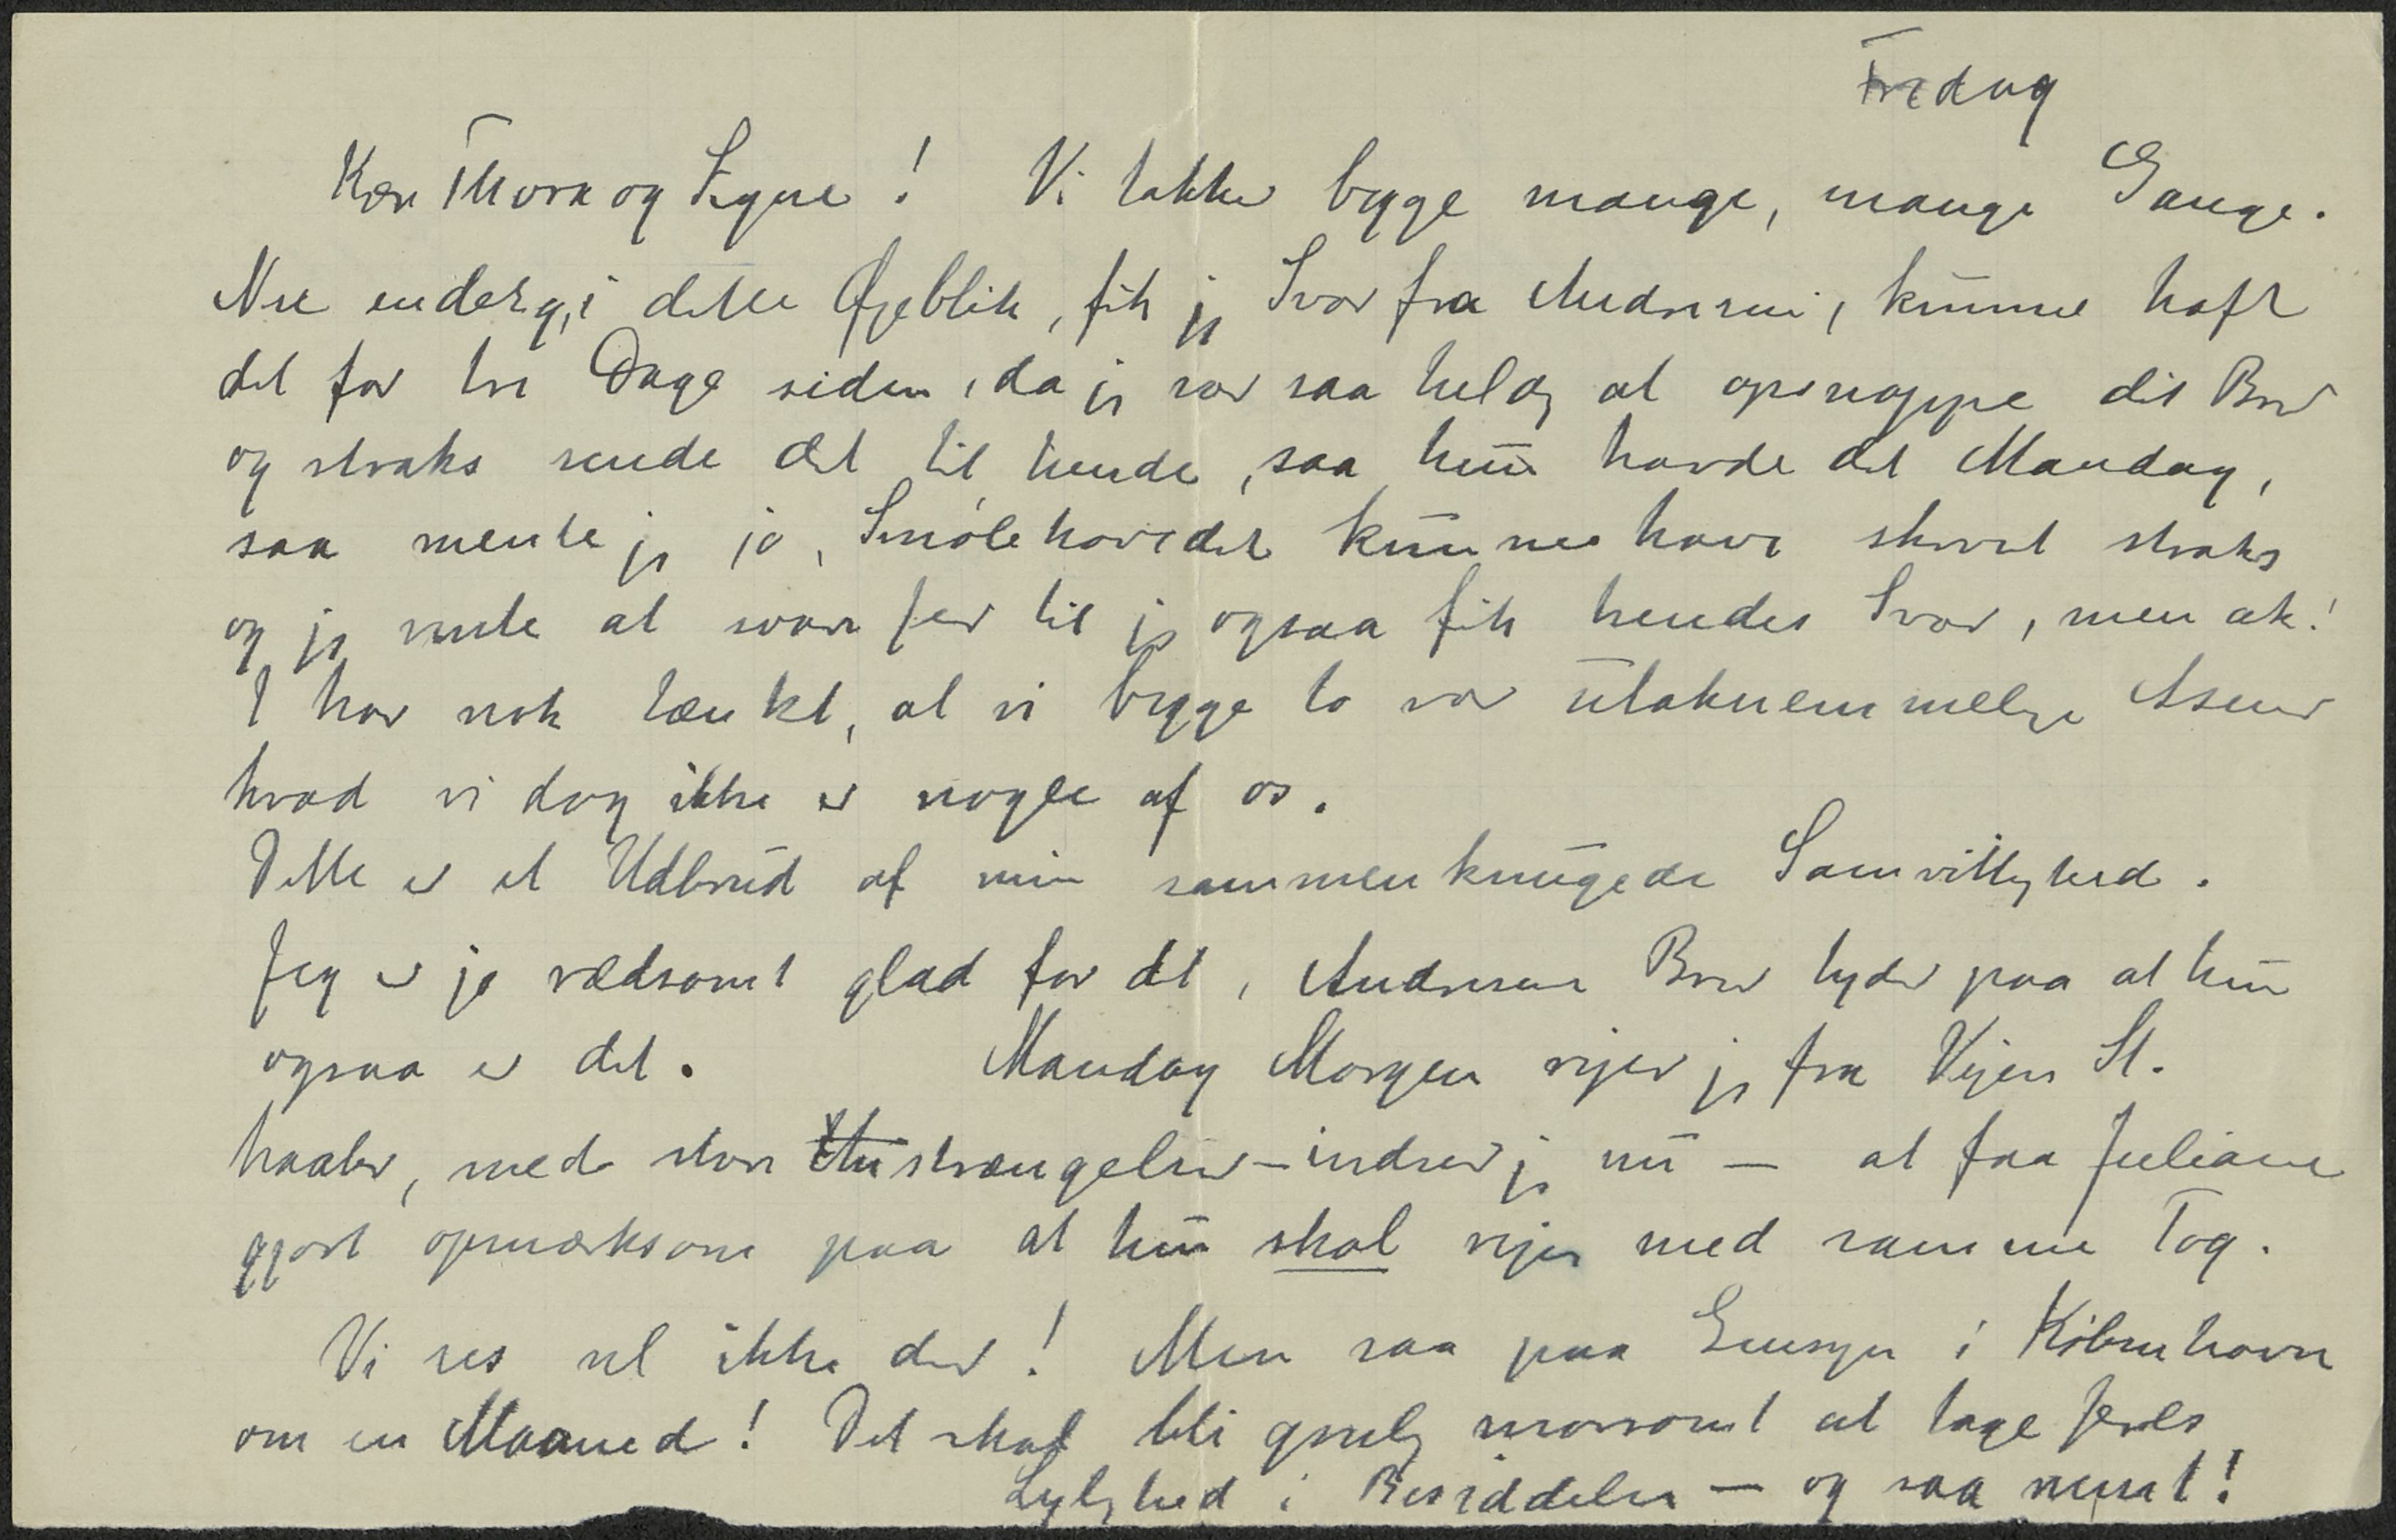 Fredag
Kære Thora og Signe! Vi takker begge mange, mange Gange.
Nu endelig, i dette Øjeblik, fik jeg Svar fra Andresen, kunne haft
det for tre Dage siden, da jeg var saa heldig at opsnappe dit Brev
og straks sende det til hende, saa hun havde det Mandag,
saa mente jeg jo, Smølehovedet kunne have skrevet straks
og jeg vente at svare jer til jeg ogsaa fik hendes Svar, men ak!
I har nok tænkt, at vi begge to var utaknemmelige Asener
hvad vi dog ikke er nogle af os.
Dette er et Udbrud af min sammenknugede Samvittighed.
Jeg er jo rædsomt glad for det, Andresens Brev tyder paa at hun
ogsaa er det. Mandag Morgen rejser jeg fra Vejen St.
haaber, med store Anstrængelser – indser jeg nu – at faa Juliane
gjort opmærksom paa at hun skal rejse med samme Tog.
Vi ses vel ikke der! Men saa paa Gensyn i København
om en Maaned! Det skal bli gruelig morsomt at tage jeres
Lejlighed i Besiddelse – og saa nemt!